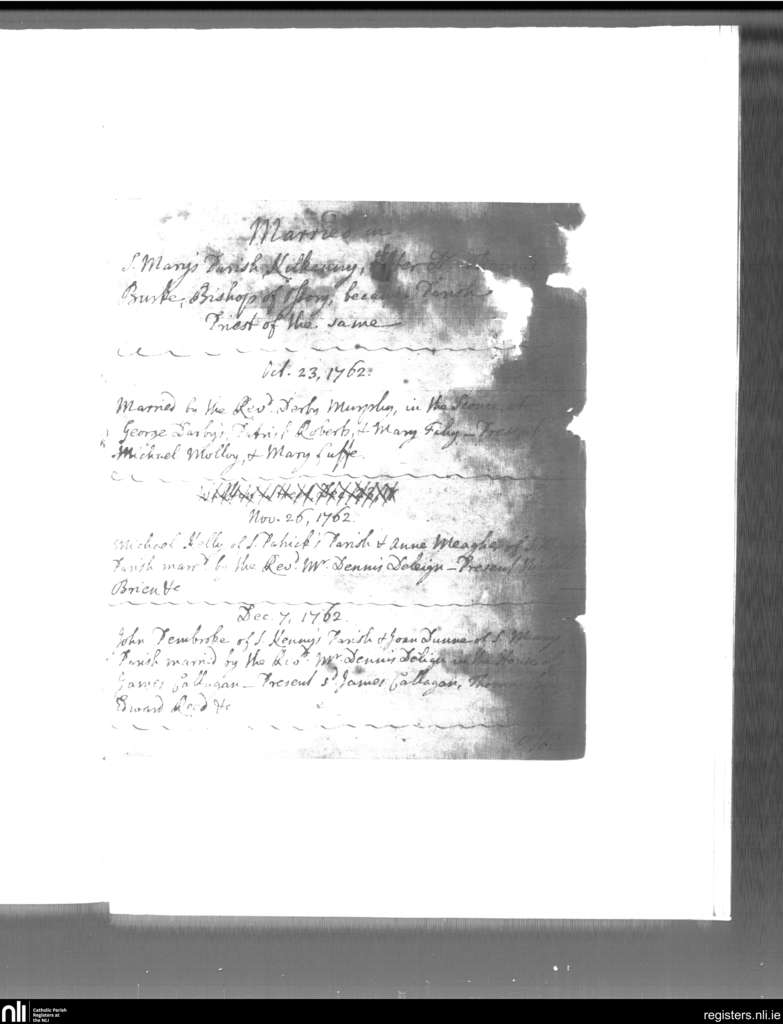 Married in
S. Mary's Parish, Kilkenny, after
Burke, Bishop of Ossory, became Parish
Priest of the same
Oct. 23, 1762.
Married by the Revd. Darby Murphy, in the
George Darby's, Patrick Roberts, & Mary Present
Michael Molloy, & Mary Luffe.
Nov. 26, 1762.
Michael Kelly of S. Patrick's Parish & Anne Meagher of S.
Parish marrd. by the Revd. Mr. Dennis Deleign – Present
Brien &c
Dec. 7, 1762.
John Pembroke of S. Kenny's Parish & Joan Dunne of S. Mary's
Parish married by the Revd. Mr. Dennis Deleign in the House of
James Callagan – Present sd. James Callagan,
Edward Read &c
nli
Catholic Parish
Registers at
the NLI
registers.nli.ie